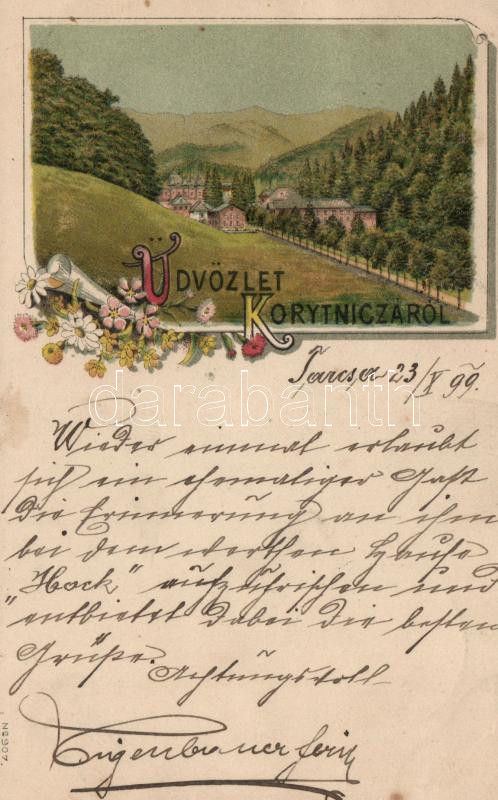 ÜDVÖZLET
KORYTNICZÁRÓL
Tarcsa 23/V 99.
Wieder einmal erlaubt
sich ein ehemaliger Gast
die Erinnerung an ihm
bei dem werthen Hause
"Hock" aufzufrischen und
entbietet dabei die besten
Grüße.
Achtungsvoll
darabanth